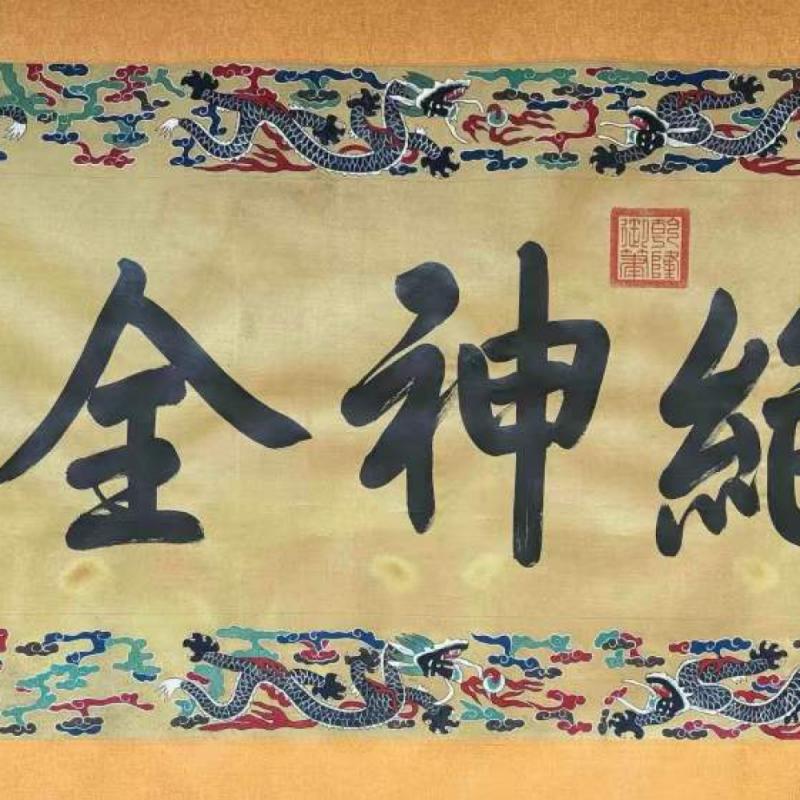 乾隆御筆
神全